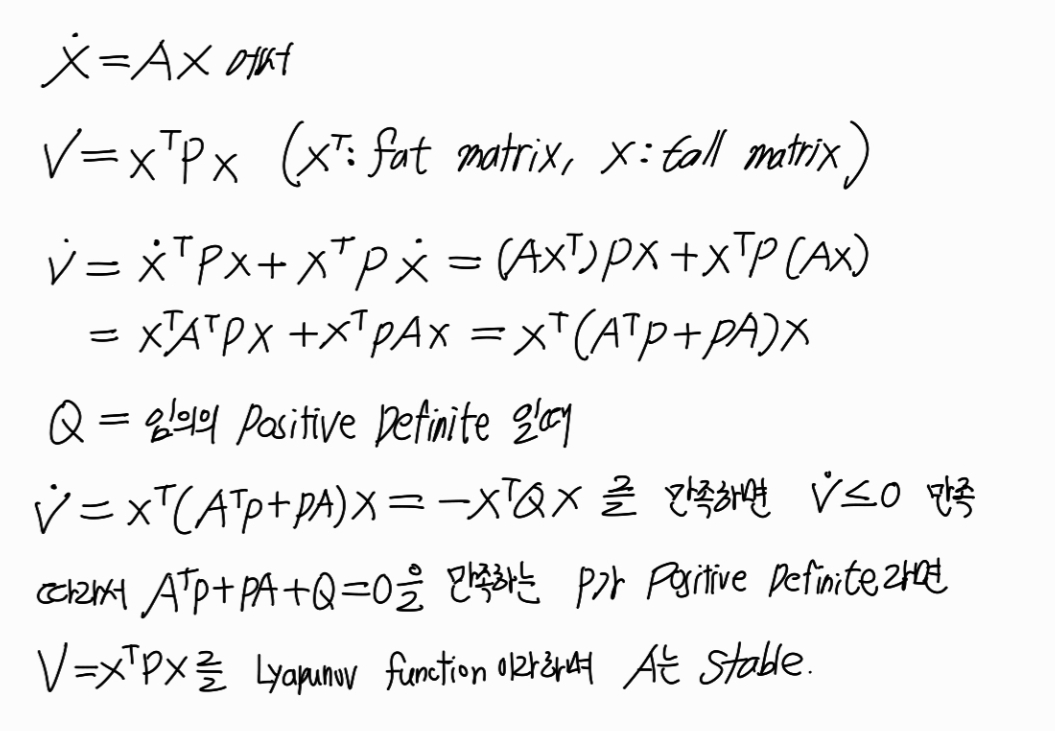 ẋ = Ax 에서
V = xᵀPx (xᵀ: fat matrix, x: tall matrix)
v̇ = ẋᵀPx + xᵀPẋ = (Axᵀ)Px + xᵀP(Ax)
= xᵀAᵀPx + xᵀPAx = xᵀ(AᵀP + PA)x
Q = 임의의 Positive Definite 일때
V̇ = xᵀ(AᵀP + PA)x = -xᵀQx 를 만족하면 V̇ ≤ 0 만족
따라서 AᵀP + PA + Q = 0을 만족하는 P가 Positive Definite라면
V = xᵀPx를 Lyapunov function 이라하며 A는 Stable.